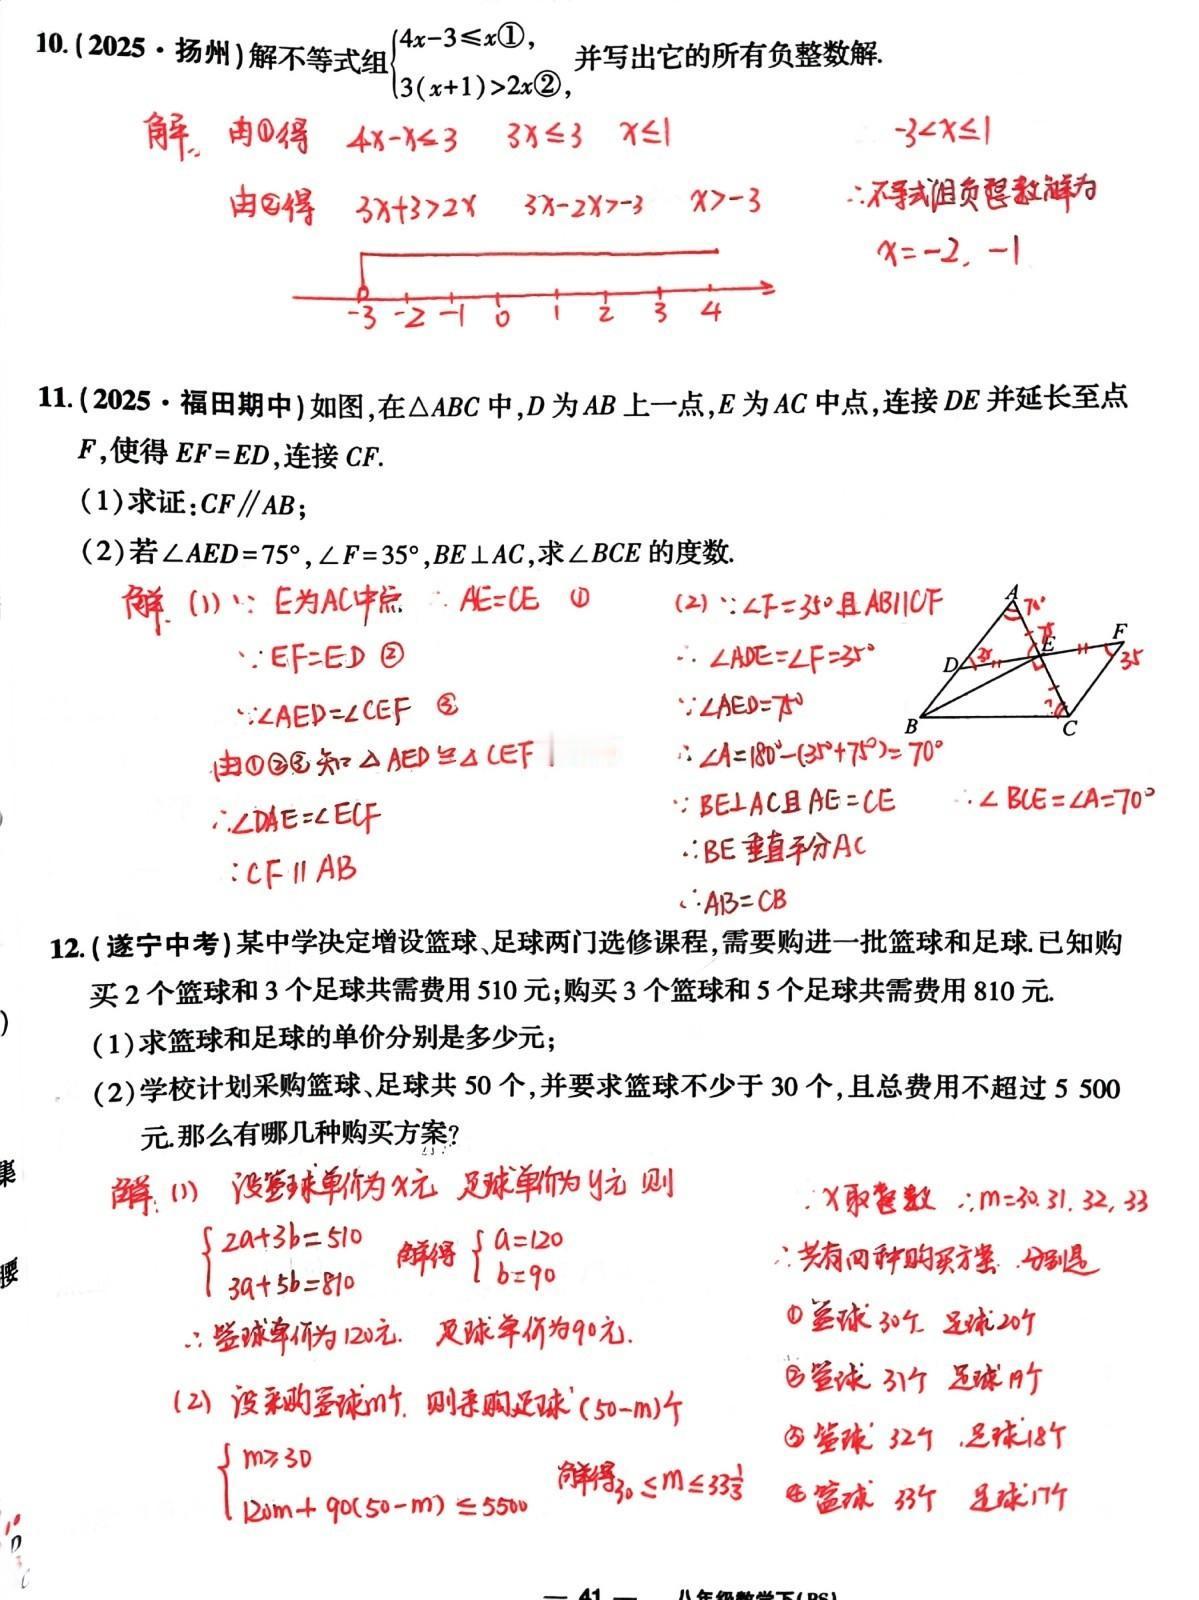 10.(2025·扬州)解不等式组{4x-3≤x①,
3(x+1)>2x②, 并写出它的所有负整数解.
解. 由①得 4x-x≤3 3x≤3 x≤1
由②得 3x+3>2x 3x-2x>-3 x>-3
-3 -2 -1 0 1 2 3 4
-3<x≤1
∴不等式组负整数解为
x=-2, -1
11.(2025·福田期中)如图,在△ABC中,D为AB上一点,E为AC中点,连接DE并延长至点
F,使得EF=ED,连接CF.
(1)求证:CF∥AB;
(2)若∠AED=75°,∠F=35°,BE⊥AC,求∠BCE的度数.
解. (1)∵ E为AC中点 ∴ AE=CE ①
∵EF=ED ②
∵∠AED=∠CEF ③
由①②③知△AED≌△CEF
∴∠DAE=∠ECF
∴CF∥AB
(2)∵∠F=35°且AB∥CF
∴∠ADE=∠F=35°
∵∠AED=75°
∴∠A=180°-(35°+75°)=70°
∵BE⊥AC且AE=CE
∴BE垂直平分AC
∴AB=CB
∴∠BCE=∠A=70°
A 70°
75
E
F
35
D 35
B
C
70
12.(遂宁中考)某中学决定增设篮球、足球两门选修课程,需要购进一批篮球和足球.已知购
买2个篮球和3个足球共需费用510元;购买3个篮球和5个足球共需费用810元.
(1)求篮球和足球的单价分别是多少元;
(2)学校计划采购篮球、足球共50个,并要求篮球不少于30个,且总费用不超过5 500
元.那么有哪几种购买方案?
解. (1) 设篮球单价为x元 足球单价为y元 则
{2a+3b=510
3a+5b=810
解得 {a=120
b=90
∴篮球单价为120元. 足球单价为90元.
(2) 设采购篮球m个. 则采购足球(50-m)个
{m≥30
120m+90(50-m)≤5500
解得30≤m≤33⅓
∵x取整数 ∴m=30.31.32,33
∴共有四种购买方案 分别是
①篮球30个 足球20个
②篮球31个 足球19个
③篮球32个 足球18个
④篮球33个 足球17个
集
腰
— 41 — 八年级数学下(BS)